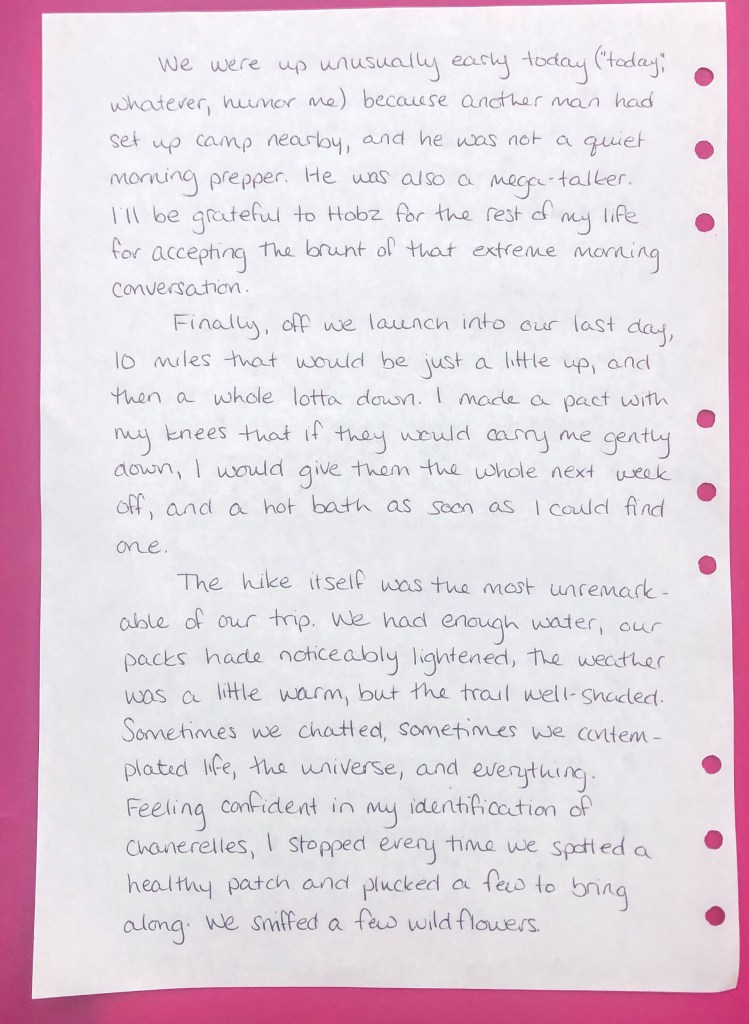 We were up unusually early today ("today",
whatever, humor me) because another man had
set up camp nearby, and he was not a quiet
morning prepper. He was also a mega-talker.
I'll be grateful to Hobz for the rest of my life
for accepting the brunt of that extreme morning
conversation.
Finally, off we launch into our last day,
10 miles that would be just a little up, and
then a whole lotta down. I made a pact with
my knees that if they would carry me gently
down, I would give them the whole next week
off, and a hot bath as soon as I could find
one.
The hike itself was the most unremark-
able of our trip. We had enough water, our
packs hade noticeably lightened, the weather
was a little warm, but the trail well-shaded.
Sometimes we chatted, sometimes we contem-
plated life, the universe, and everything.
Feeling confident in my identification of
Chanerelles, I stopped every time we spotted a
healthy patch and plucked a few to bring
along. We sniffed a few wildflowers.